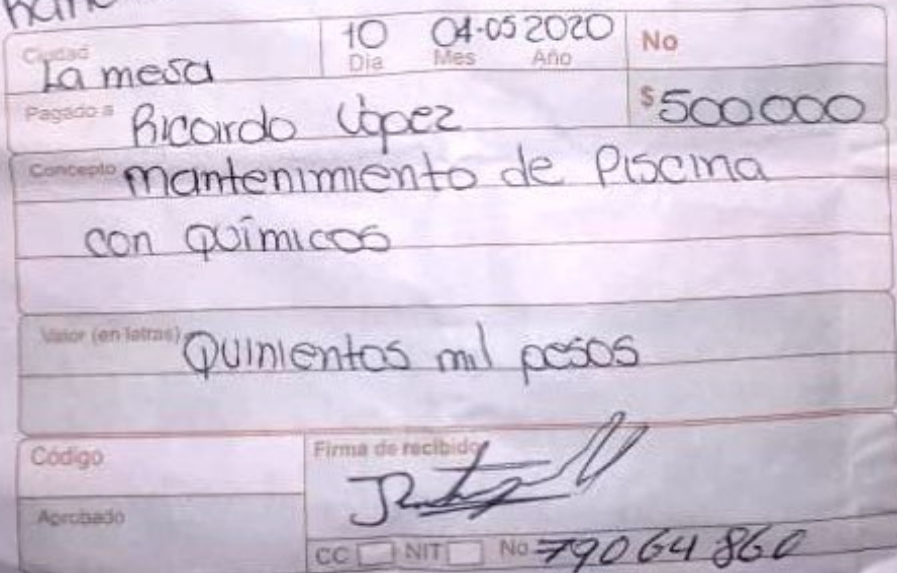 Ciudad La mesa 10 04-05 2020 No
Dia Mes Año
Pagado a Ricardo López $ 500.000
Concepto mantenimiento de Piscina
con químicos
Valor (en letras) Quinientos mil pesos
Código Firma de recibido
Aprobado
CC NIT No 79064860